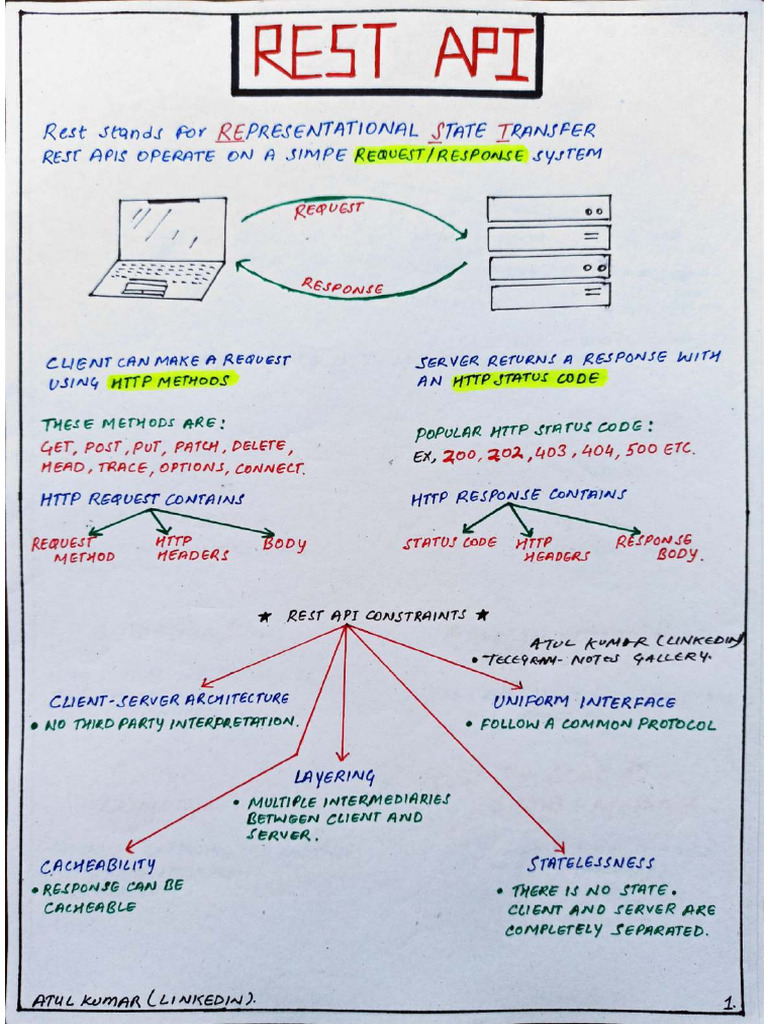 REST API
Rest stands for REPRESENTATIONAL STATE TRANSFER
REST APIS OPERATE ON A SIMPE REQUEST/RESPONSE SYSTEM
REQUEST
RESPONSE
CLIENT CAN MAKE A REQUEST
USING HTTP METHODS
THESE METHODS ARE:
GET, POST, PUT, PATCH, DELETE,
HEAD, TRACE, OPTIONS, CONNECT.
HTTP REQUEST CONTAINS
REQUEST
METHOD
HTTP
HEADERS
BODY
SERVER RETURNS A RESPONSE WITH
AN HTTP STATUS CODE
POPULAR HTTP STATUS CODE:
EX, 200, 202, 403, 404, 500 ETC.
HTTP RESPONSE CONTAINS
STATUS CODE
HTTP
HEADERS
RESPONSE
BODY.
★ REST API CONSTRAINTS ★
ATUL KUMAR (LINKEDIN)
• TELEGRAM- NOTES GALLERY.
CLIENT-SERVER ARCHITECTURE
• NO THIRD PARTY INTERPRETATION.
UNIFORM INTERFACE
• FOLLOW A COMMON PROTOCOL
LAYERING
• MULTIPLE INTERMEDIARIES
BETWEEN CLIENT AND
SERVER.
CACHEABILITY
• RESPONSE CAN BE
CACHEABLE
STATELESSNESS
• THERE IS NO STATE.
CLIENT AND SERVER ARE
COMPLETELY SEPARATED.
ATUL KUMAR (LINKEDIN).
1.